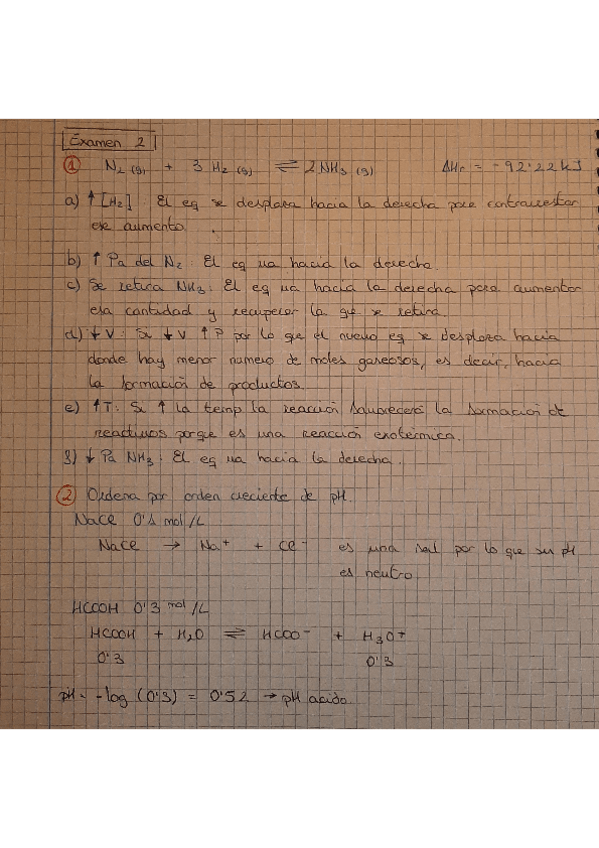 Examen 2
① N₂ (g) + 3 H₂ (g) ⇌ 2NH₃ (g) ΔHr = -92'22 kJ
a) ↑ [H₂] : El eq se desplaza hacia la derecha para contrarrestar
ese aumento.
b) ↑ Pa del N₂ : El eq va hacia la derecha.
c) Se retira NH₃ : El eq va hacia la derecha para aumentar
esa cantidad y recuperar la que se retira.
d) ↓ V : Si ↓ V ↑ P por lo que el nuevo eq se desplaza hacia
donde hay menor numero de moles gaseosos, es decir, hacia
la formación de productos.
e) ↑ T : Si ↑ la temp la reacción favorecerá la formación de
reactivos porque es una reacción exotérmica.
g) ↓ Pa NH₃ : El eq va hacia la derecha.
② Ordena por orden creciente de pH.
NaCl 0'1 mol/L
NaCl → Na⁺ + Cl⁻ es una sal por lo que su pH
es neutro
HCOOH 0'3 mol/L
HCOOH + H₂O ⇌ HCOO⁻ + H₃O⁺
0'3 0'3
pH = -log (0'3) = 0'52 → pH acido.